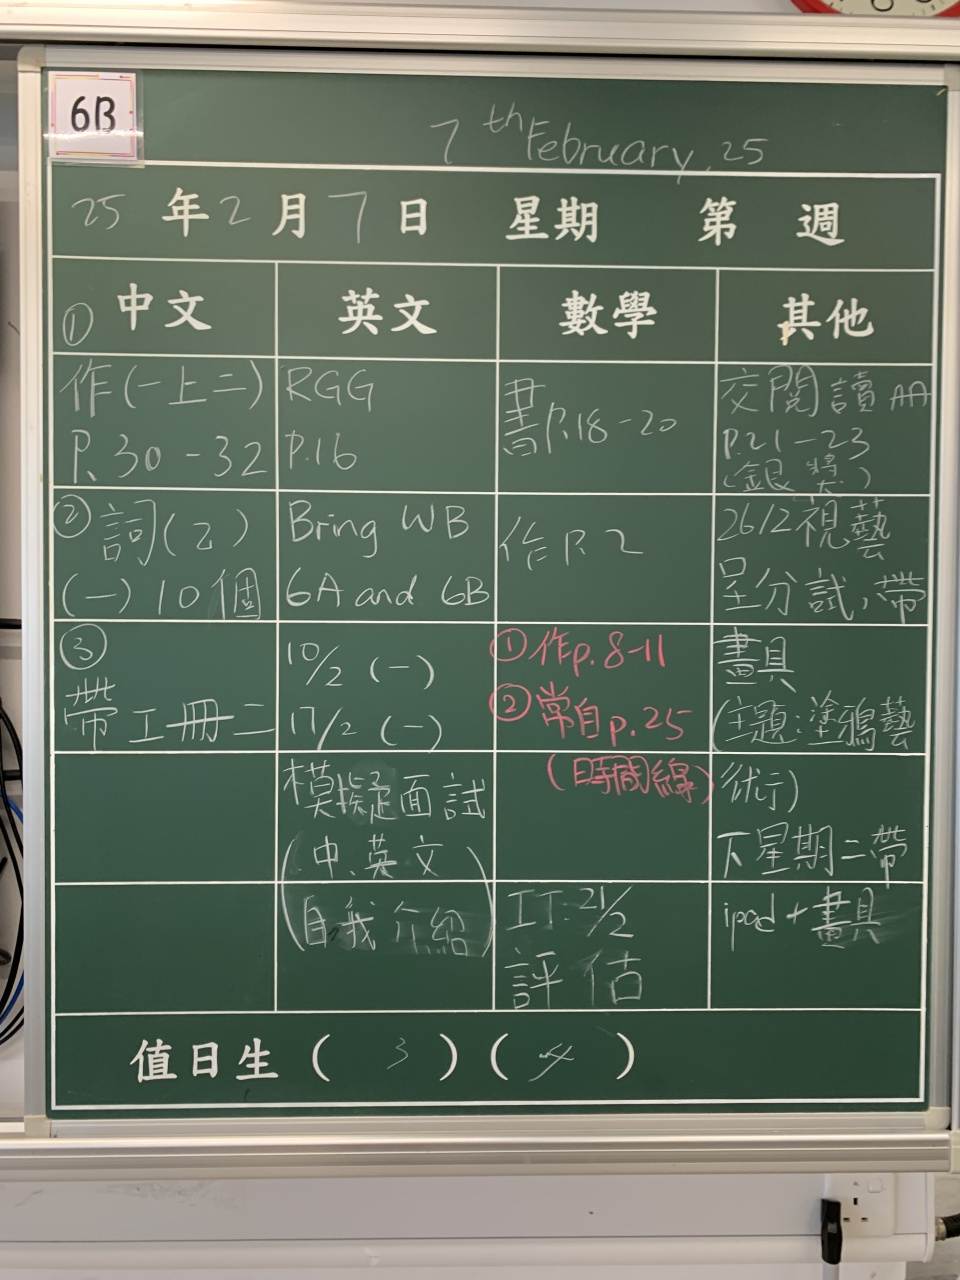 6B
7th February, 25
25 年 2 月 7 日 星期 第 週
① 中文
作(一上二)
P.30-32
② 詞(乙)
(一)10個
③
帶工冊二
英文
RGG
P.16
Bring WB
6A and 6B
10/2 (一)
17/2 (一)
模擬面試
(中、英文
自我介紹)
數學
書P.18-20
作P.2
①作p.8-11
②常自p.25
(時間線)
IT: 21/2
評估
其他
交閱讀AA
P.21-23
(銀獎)
26/2視藝
呈分試,帶
畫具
(主題:塗鴉藝
術)
下星期二帶
ipad + 畫具
值日生( 3 )( 4 )